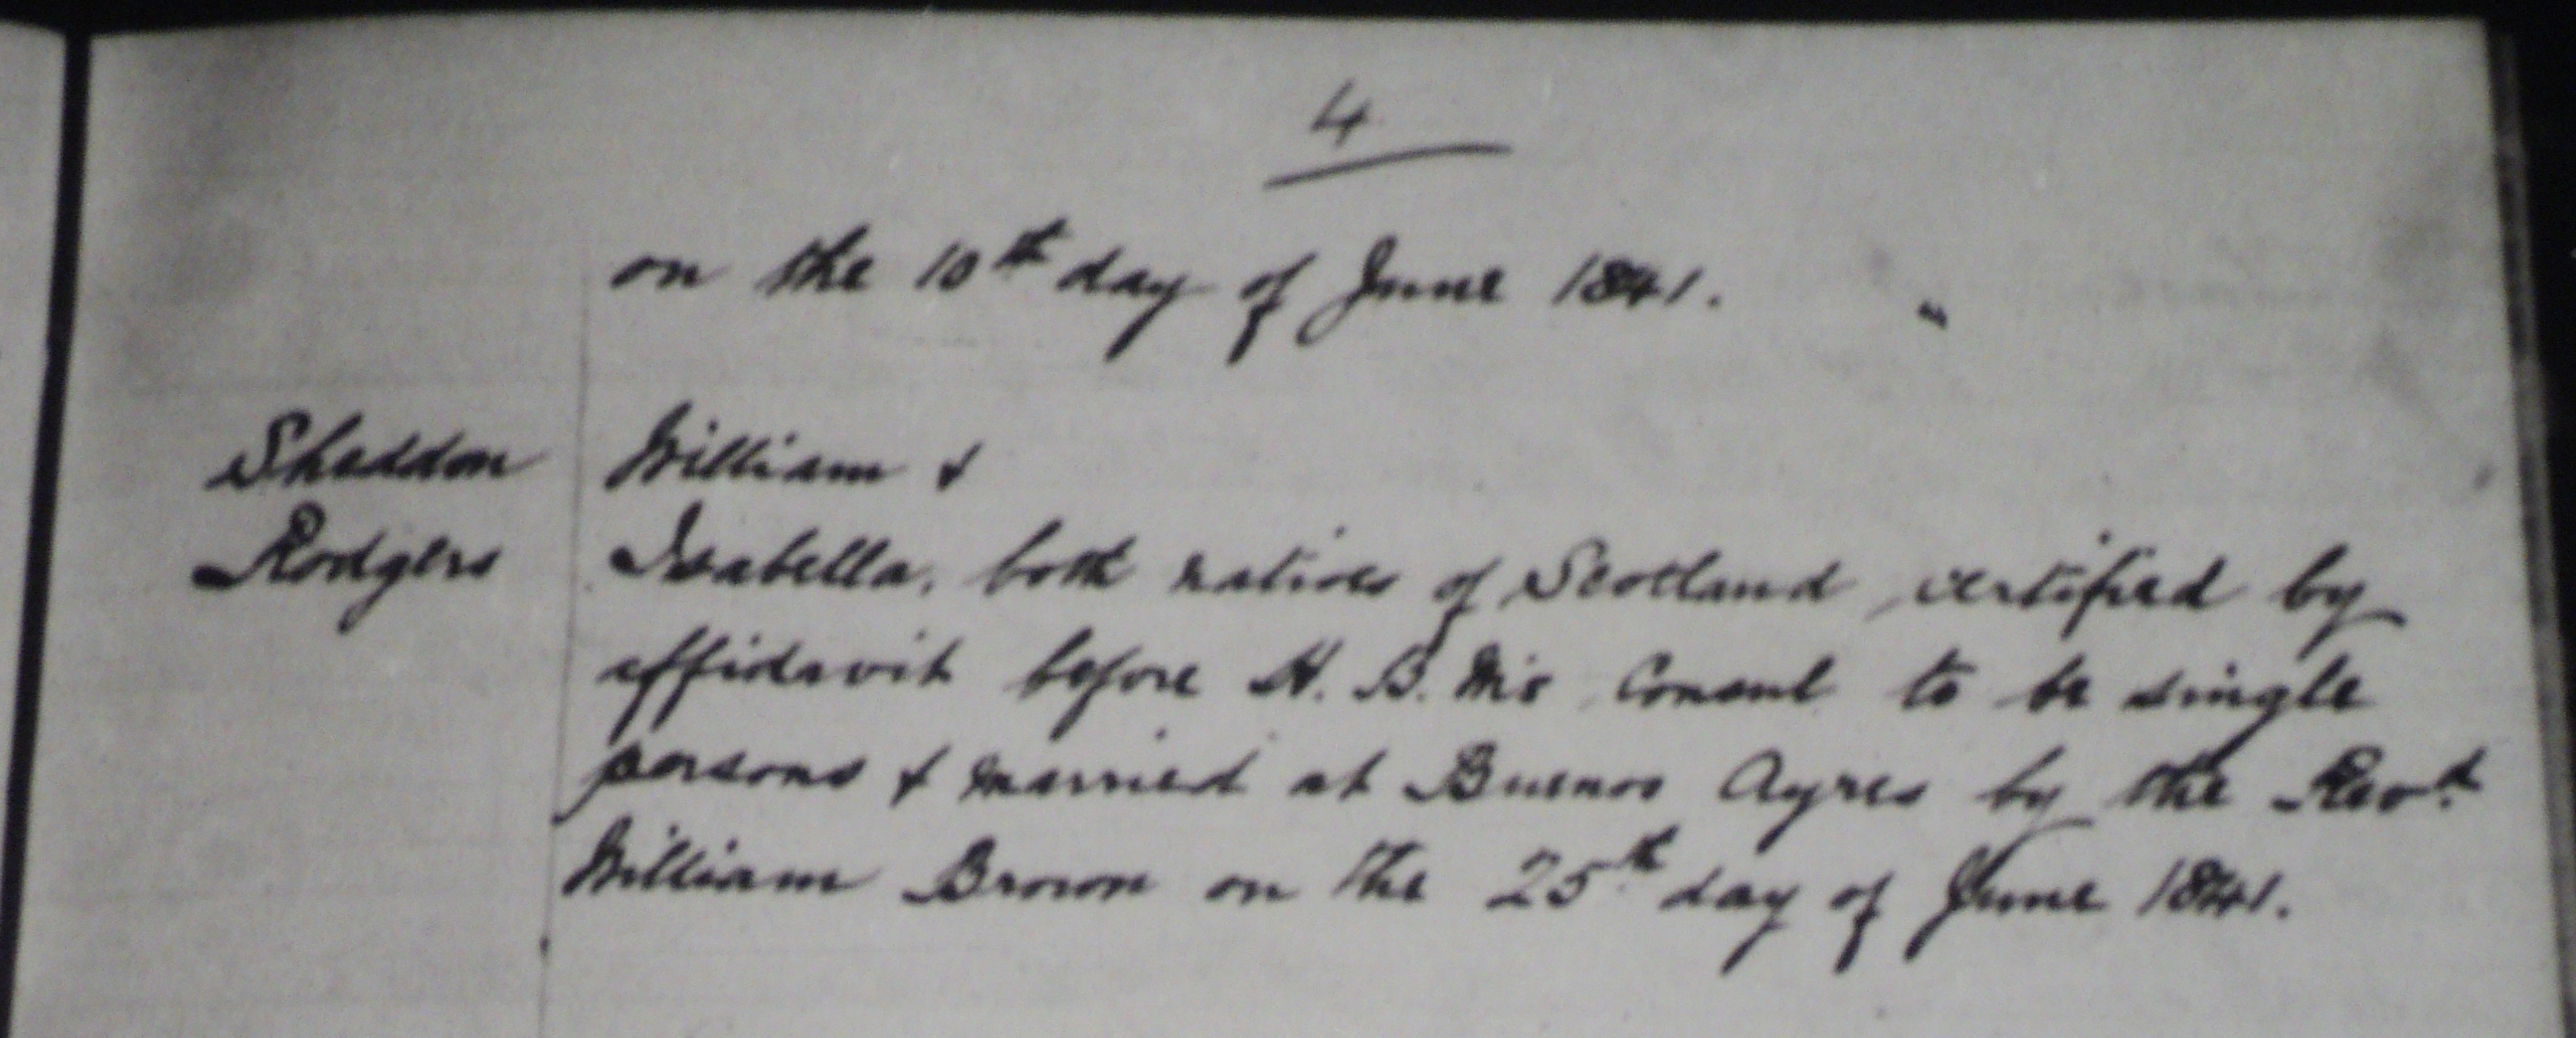 4
on the 10th day of June 1841. "
Sheddon William &
Rodgers Isabella, both natives of Scotland, certified by
affidavit before H. B. M's Consul to be single
persons & married at Buenos Ayres by the Revd.
William Brown on the 25th day of June 1841.